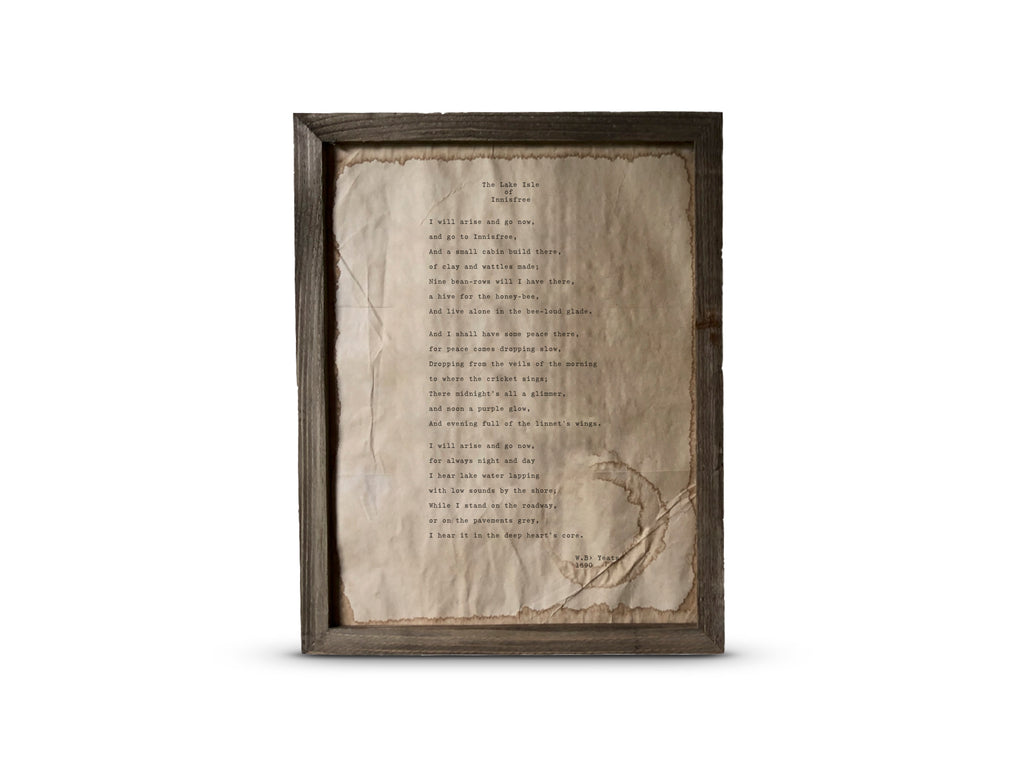 The Lake Isle
of
Innisfree
I will arise and go now,
and go to Innisfree,
And a small cabin build there,
of clay and wattles made;
Nine bean-rows will I have there,
a hive for the honey-bee,
And live alone in the bee-loud glade.
And I shall have some peace there,
for peace comes dropping slow,
Dropping from the veils of the morning
to where the cricket sings;
There midnight's all a glimmer,
and noon a purple glow,
And evening full of the linnet's wings.
I will arise and go now,
for always night and day
I hear lake water lapping
with low sounds by the shore;
While I stand on the roadway,
or on the pavements grey,
I hear it in the deep heart's core.
W.B> Yeats
1890